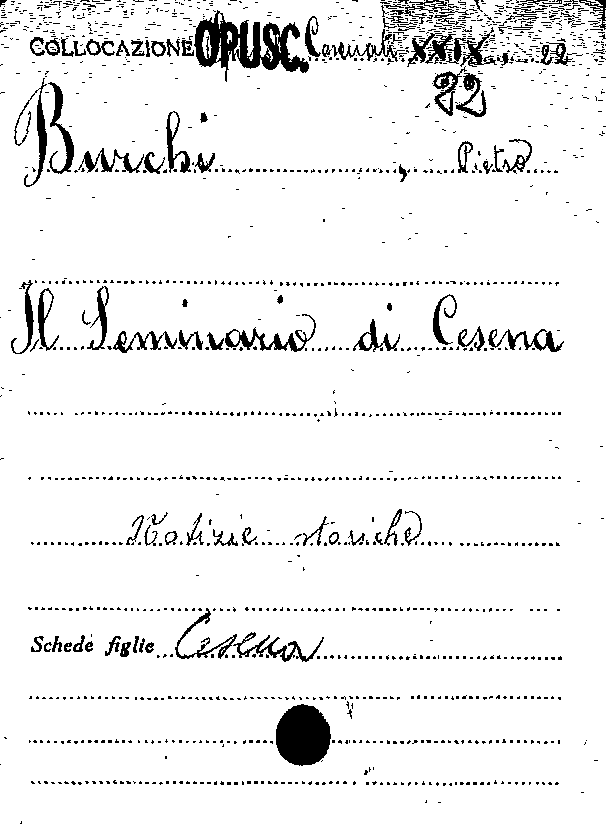 COLLOCAZIONE OPUSC. Cesenati XXIX, 22
22
Burchi, Pietro
Il Seminario di Cesena
Notizie storiche
Schede figlie Cesena